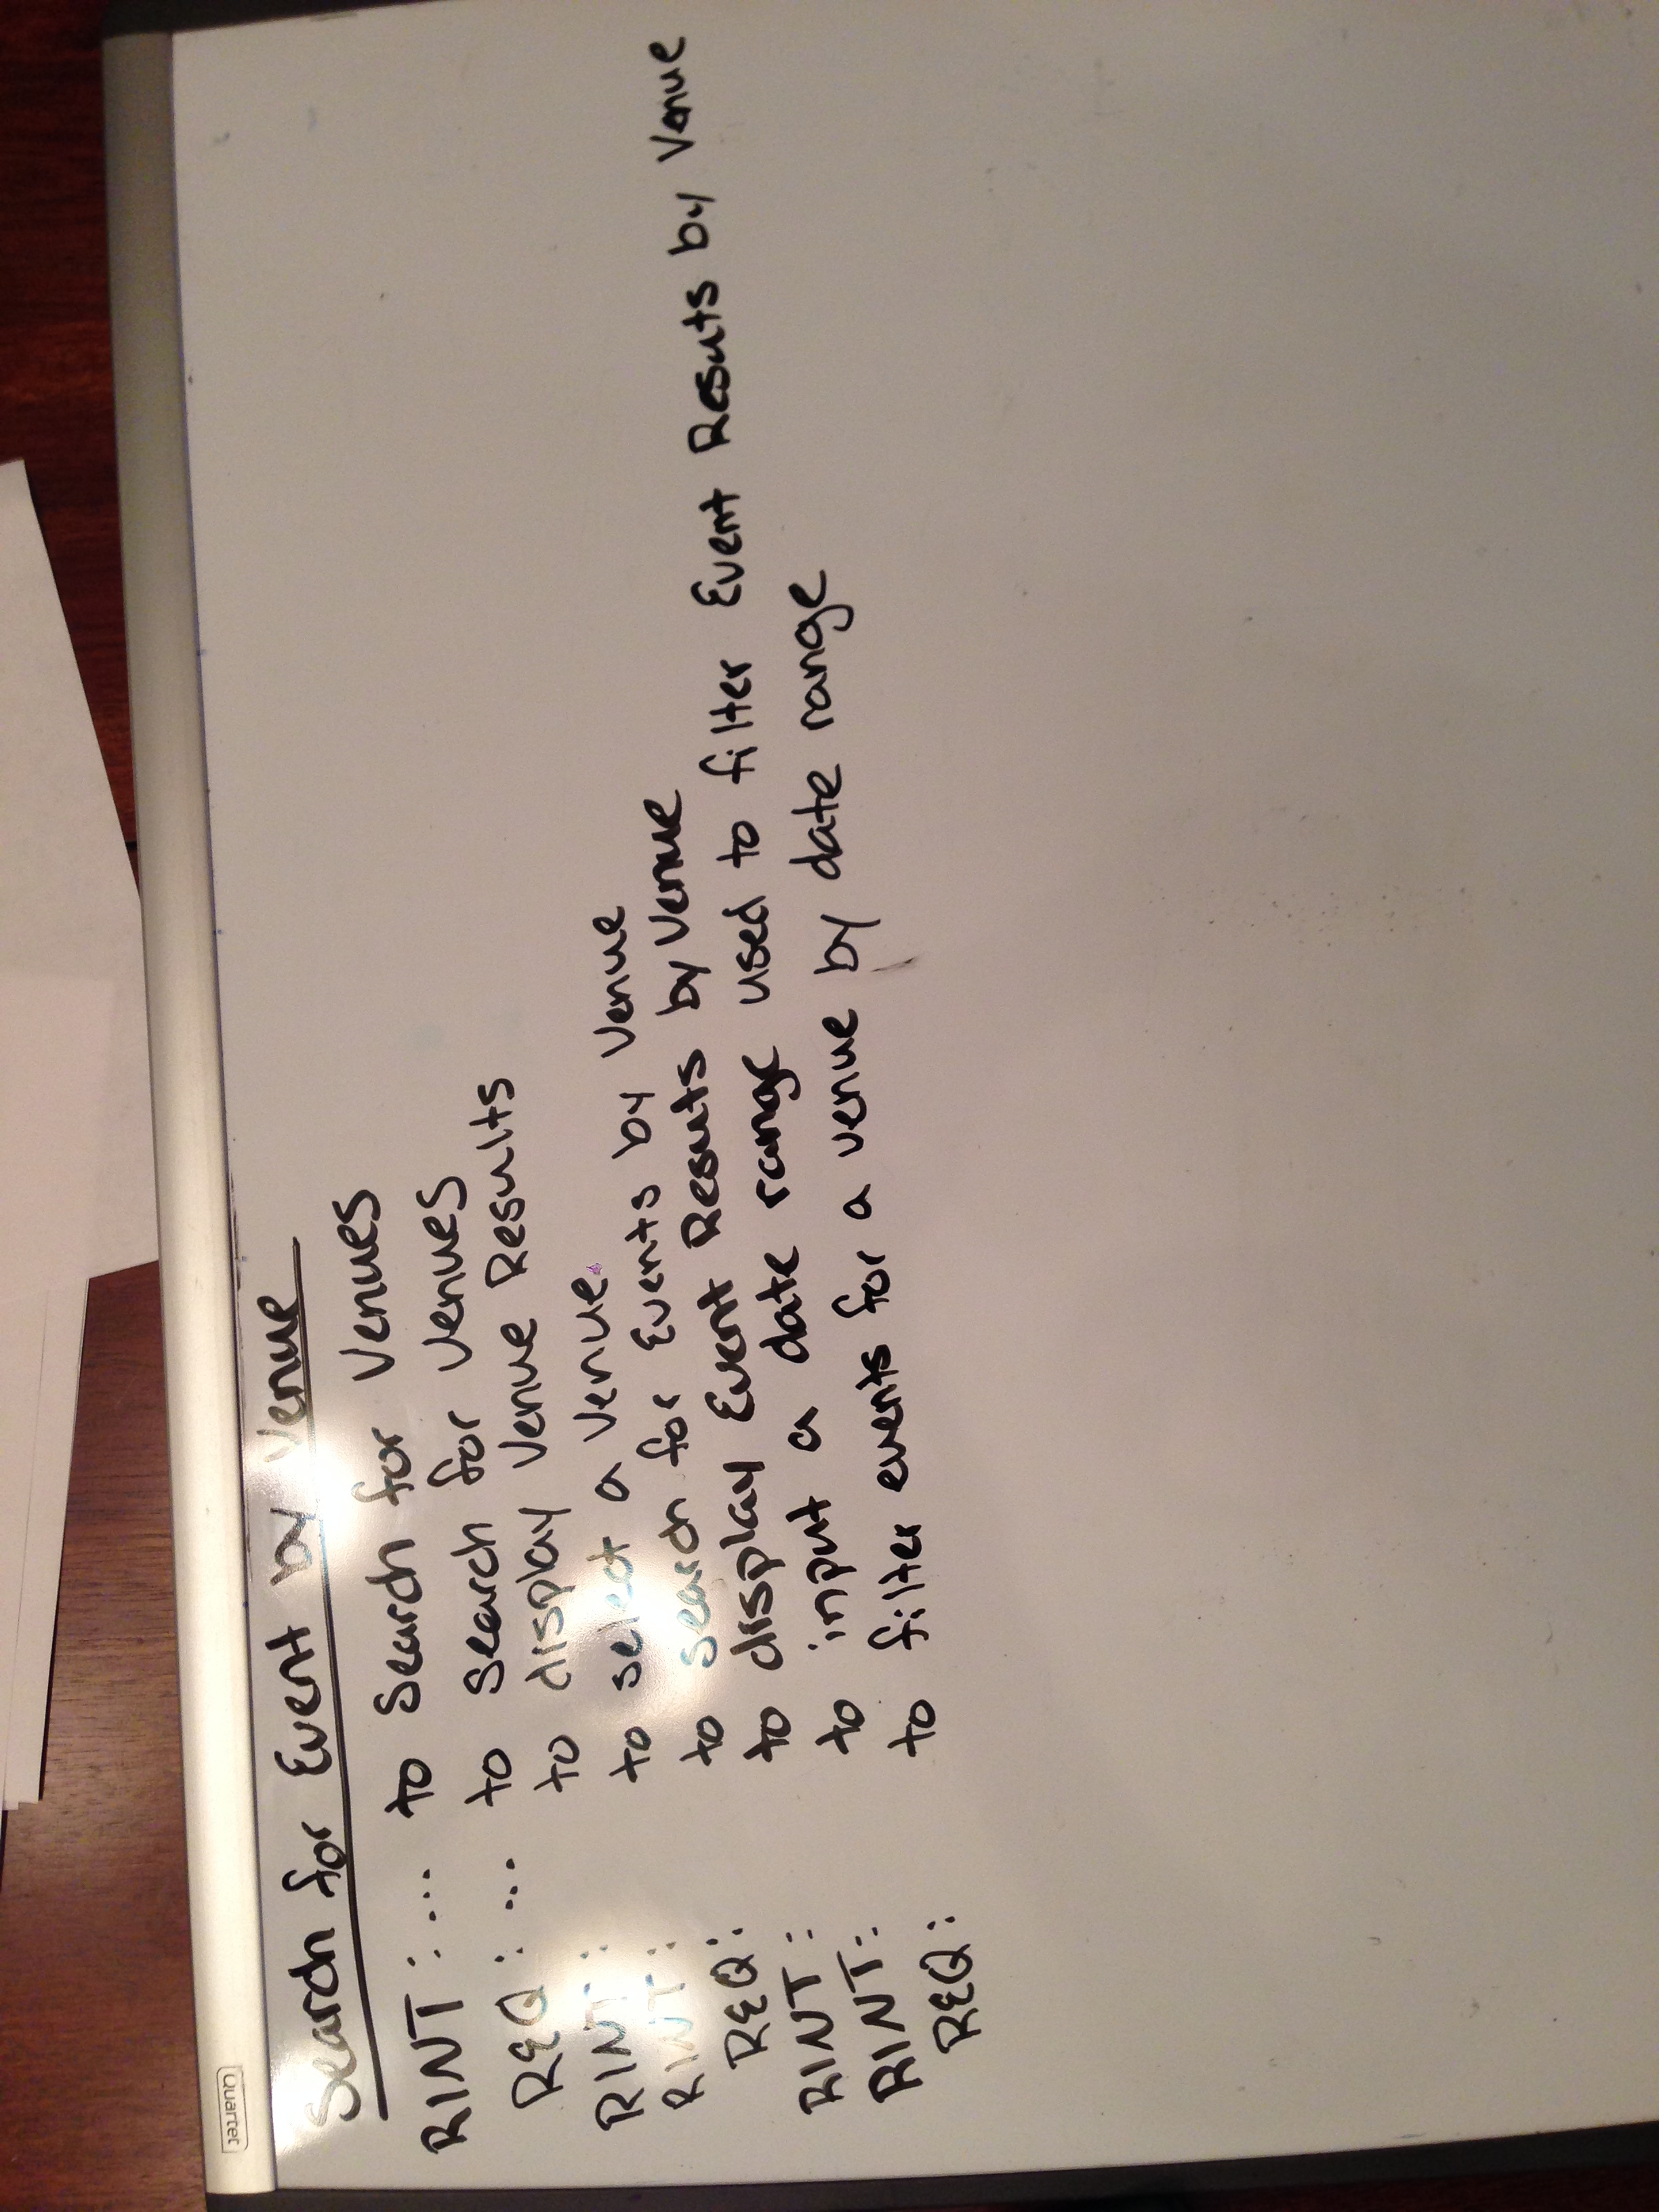 Quartet
Search for Event by Venue
RINT: ... to search for Venues
REQ: ... to search for venues
RINT: to display Venue Results
RINT: to select a Venue.
REQ: to search for Events by Venue
RINT: to display Event Results by Venue
RINT: to input a date range used to filter Event Results by Venue
REQ: to filter events for a venue by date range